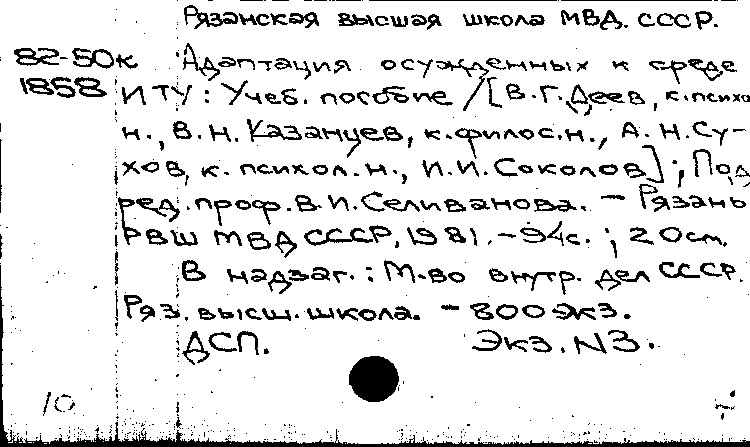 Рязанская высшая школа МВД. СССР.
82-50к Адаптация осужденных к среде
1858 ИТУ: Учеб. пособие /[В.Г.Деев, к.психо
н., В.Н. Казанцев, к.филос.н., А.Н.Су-
хов, к. психол.н., И.И.Соколов]; Под
ред. проф. В.И.Селиванова. — Рязань
РВШ МВД СССР, 1981. - 94с.; 20см.
В надзаг.: М-во внутр. дел СССР.
Ряз. высш. школа. - 800 экз.
ДСП. Экз. N3.
10